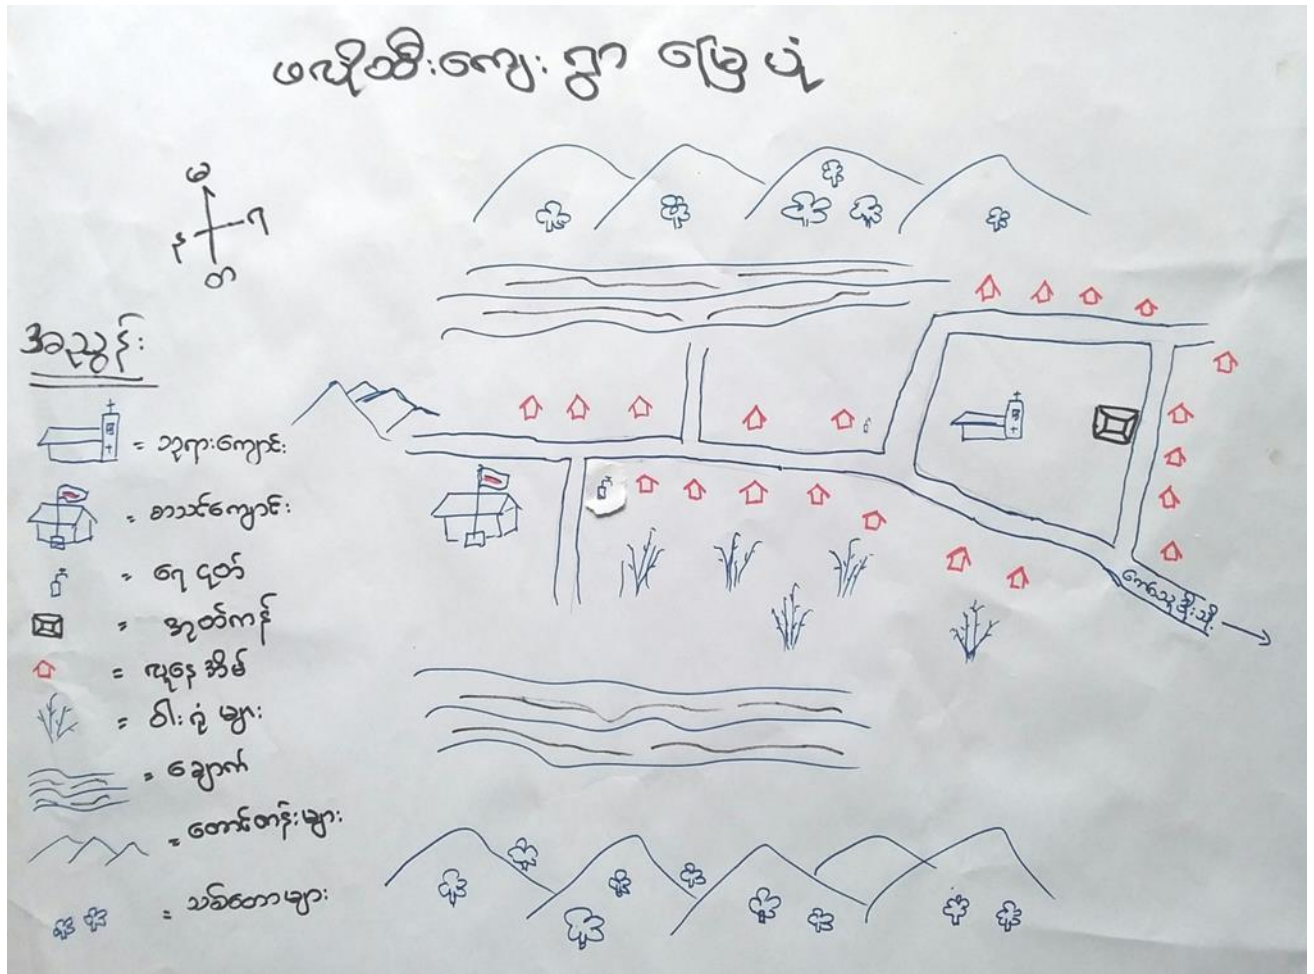 ဖလိုထီးကျေးရွာ မြေပုံ
မ
န
တ
အညွှန်း
= ဘုရားကျောင်း
= စာသင်ကျောင်း
= ရေငုတ်
= အုတ်ကန်
= လူနေအိမ်
= ဝါးရုံများ
= ချောက်
= တောင်တန်းများ
= သစ်တောများ